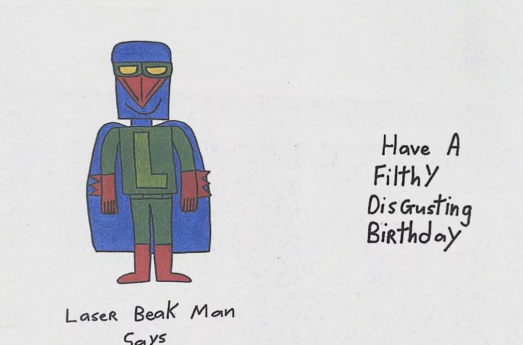 L
Laser Beak Man
Says
Have A
Filthy
Disgusting
Birthday